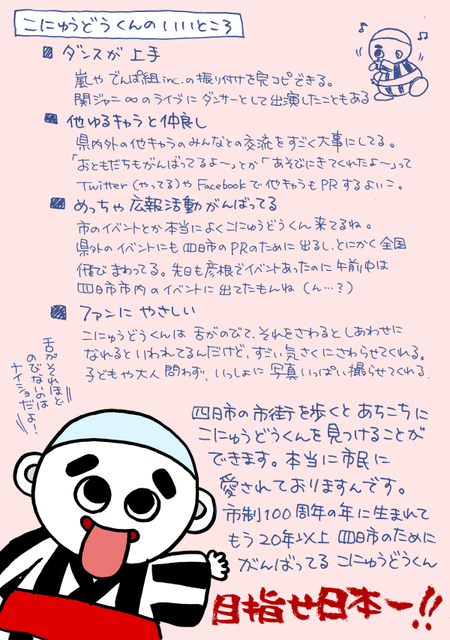 こにゅうどうくんのいいところ
ダンスが上手
嵐やでんぱ組inc.の振り付けを完コピできる。
関ジャニ∞のライブにダンサーとして出演したこともある
他ゆるキャラと仲良し
県内外の他キャラのみんなとの交流をすごく大事にしてる。
「おともだちもがんばってるよ〜」とか「あそびにきてくれたよ〜」って
Twitter(やってる)やFacebookで他キャラもPRするよいこ。
めっちゃ広報活動がんばってる
市のイベントとか本当によくこにゅうどうくん来てるね。
県外のイベントにも四日市のPRのために出るし、とにかく全国
飛びまわってる。先日も彦根でイベントあったのに午前中は
四日市市内のイベントに出てたもんね(ん…?)
ファンにやさしい
こにゅうどうくんは舌がのびて、それをさわるとしあわせに
なれるといわれてるんだけど、すごい気さくにさわらせてくれる。
子どもや大人問わず、いっしょに写真いっぱい撮らせてくれる。
舌がそれほど
のびないのは
ナイショだよー!
四日市の市街を歩くとあちこちに
こにゅうどうくんを見つけることが
できます。本当に市民に
愛されておりますんです。
市制100周年の年に生まれて
もう20年以上四日市のために
がんばってるこにゅうどうくん
目指せ日本一!!